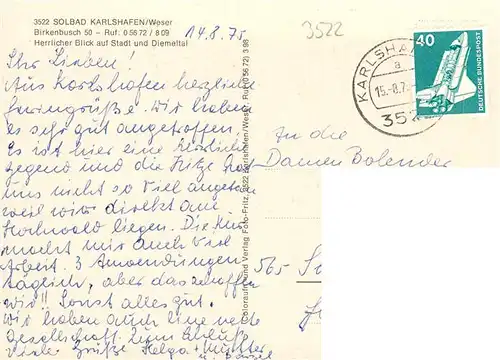 3522 SOLBAD KARLSHAFEN/Weser
Birkenbusch 50 – Ruf: 0 56 72 / 8 09
Herrlicher Blick auf Stadt und Diemeltal
14.8.75
3522
Ihr Lieben!
Aus Karlshafen herzliche
Feriengrüße. Wir haben
es sehr gut angetroffen.
Es ist hier eine herrliche
Gegend und die Hitze hat
uns nicht so viel angetan
weil wir direkt am
Hochwald liegen. Die Kur
macht mir auch viel
Arbeit. 3 Anwendungen
täglich, aber das schaffen
wir!! Sonst alles gut.
Wir haben auch eine nette
Gesellschaft. Zum Schluß
viele Grüße Helga
Foto-Fritz, 3522 Karlshafen/Weser, Ruf (0 56 72) 3 98
und Verlag
40
DEUTSCHE BUNDESPOST
KARLSHA
a
15.-8.7
352
An die
Damen Bolender
565